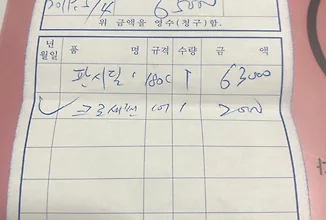 2011. 5/4 65000
위 금액을 영수(청구)함.
년월일 품 명 규격 수량 금 액
판시딜 180C 1 63000
크로세인 10T 1 2000